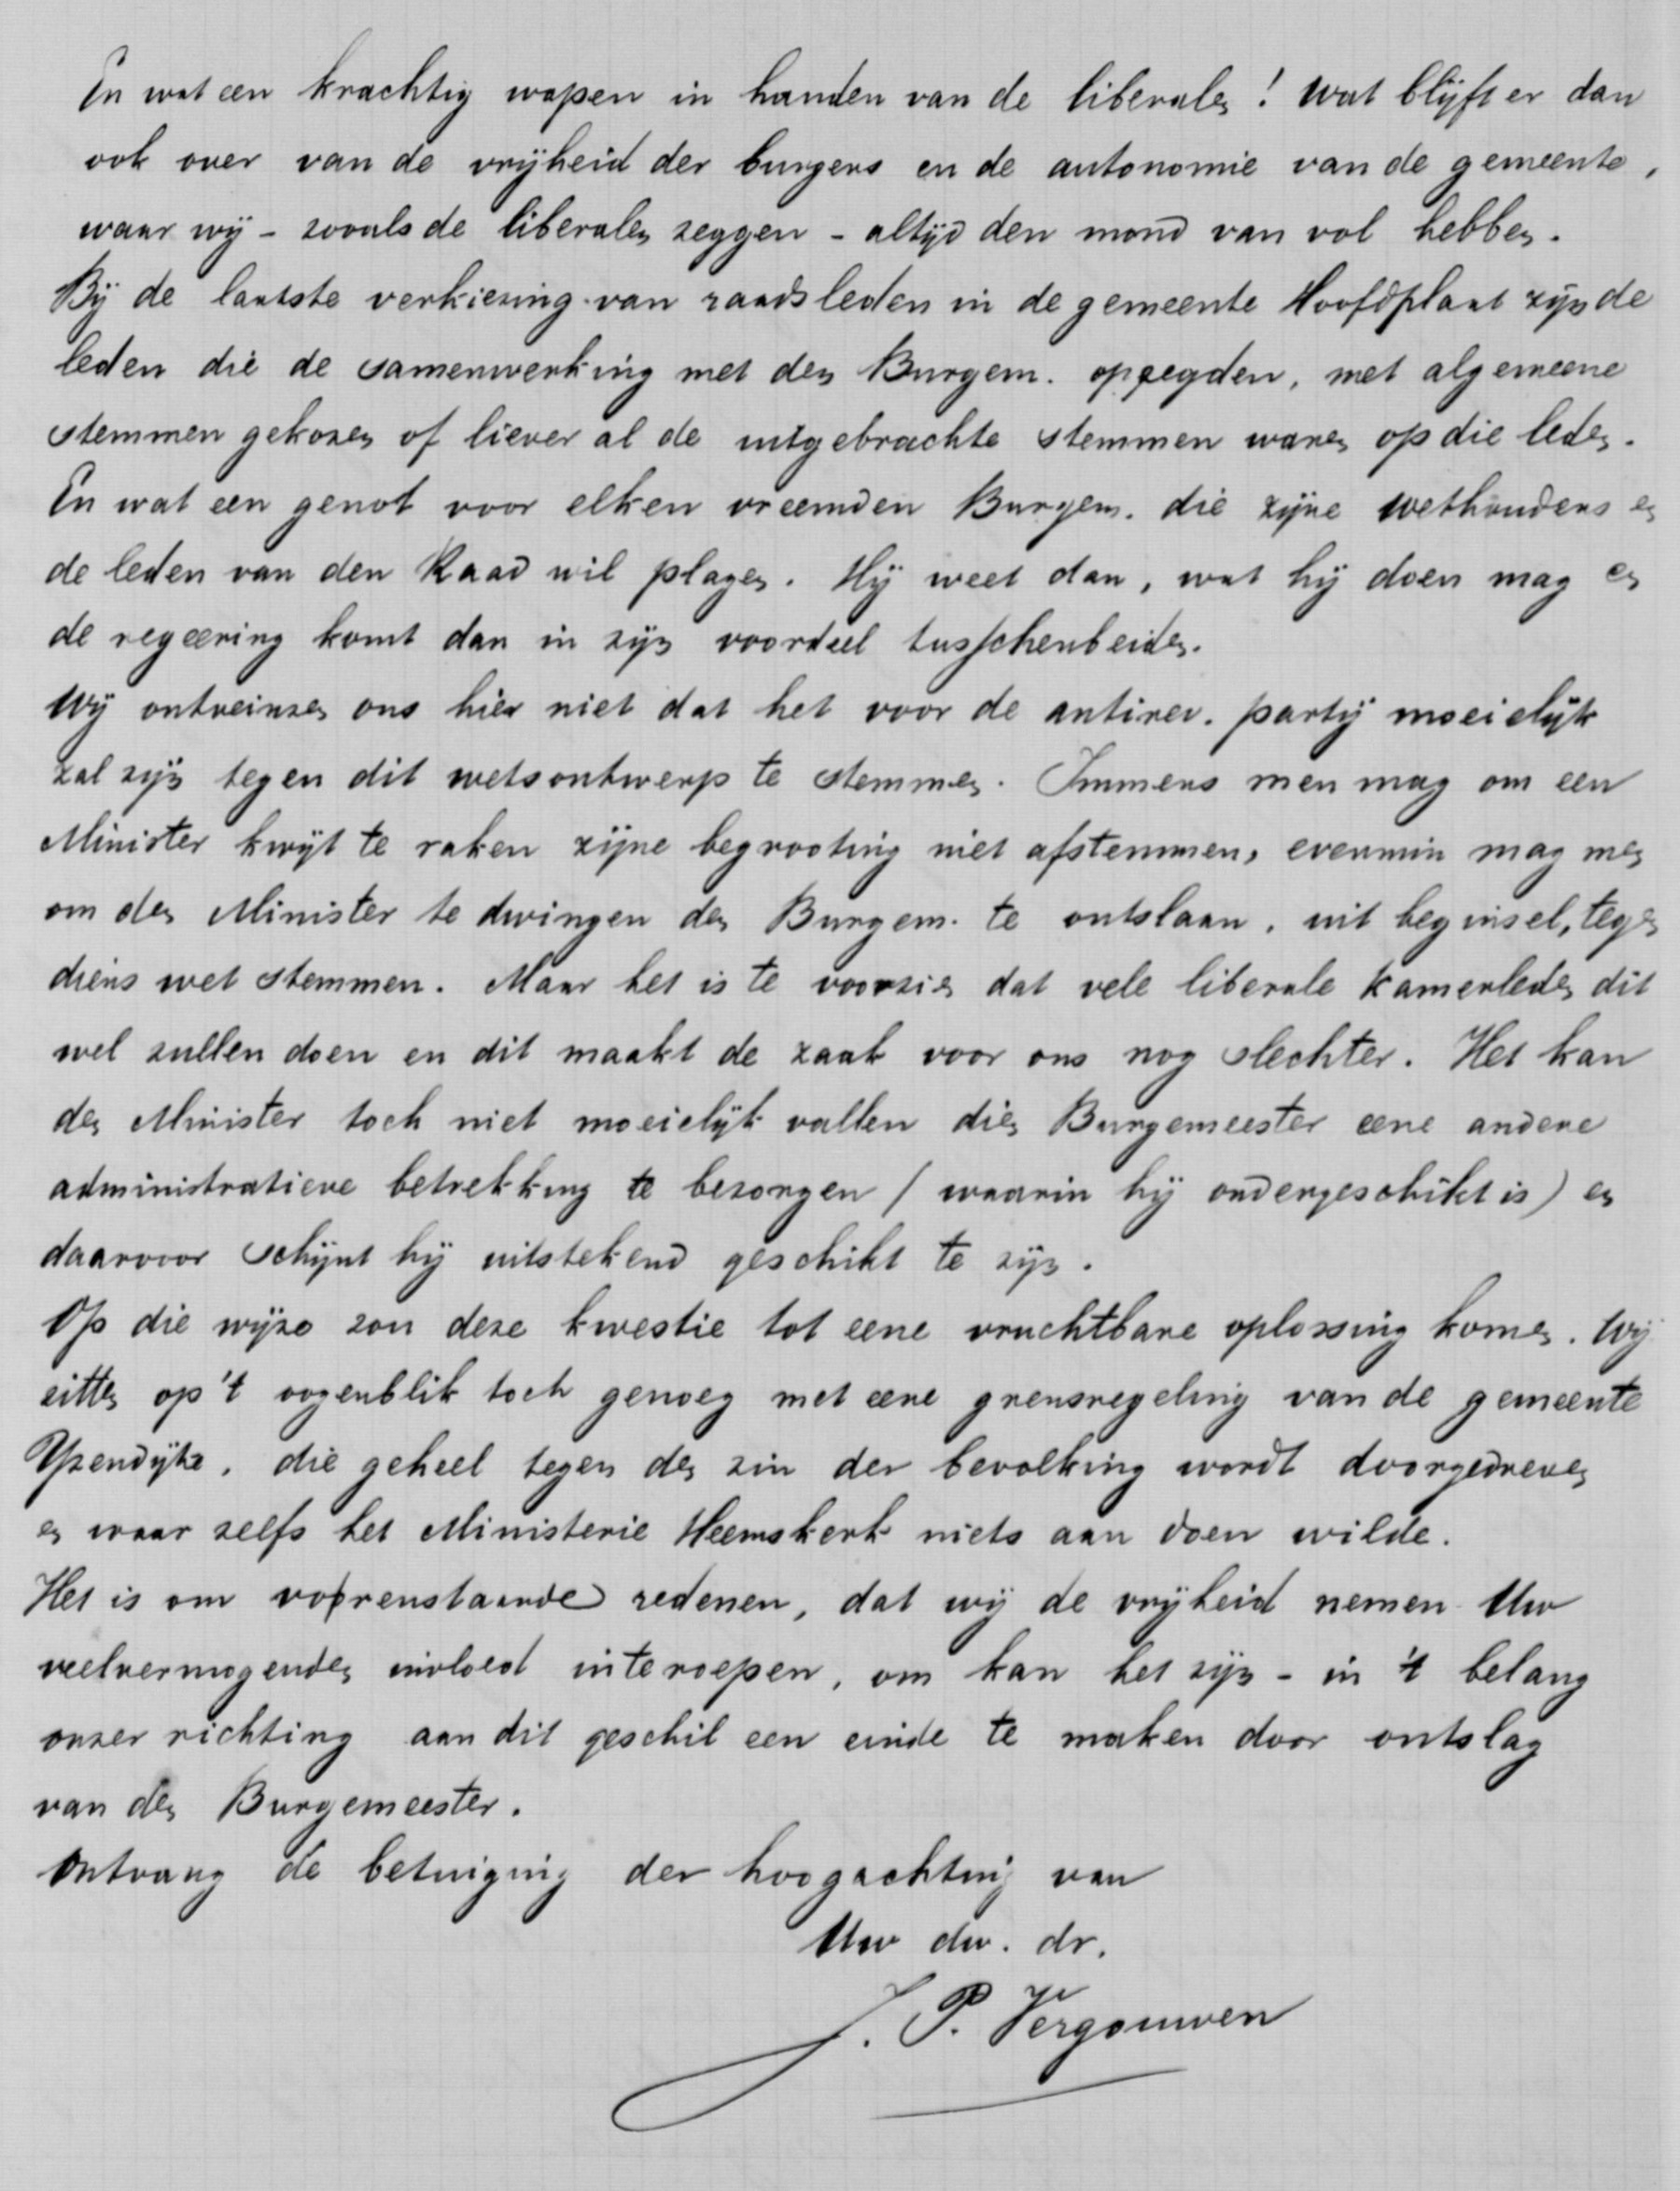 En wat een krachtig wapen in handen van de liberalen! Wat blijft er dan
ook over van de vrijheid der burgers en de autonomie van de gemeente,
waar wij - zooals de liberalen zeggen - altijd den mond van vol hebben.
Bij de laatste verkiezing van raadsleden in de gemeente Hoofdplaat zijn de
leden die de samenwerking met den Burgem. opzegden, met algemeene
stemmen gekozen of liever al de uitgebrachte stemmen waren op die leden.
En wat een genot voor elken vreemden Burgem. die zijne wethouders en
de leden van den Raad wil plagen. Hij weet dan, wat hij doen mag en
de regeering komt dan in zijn voordeel tusschenbeiden.
Wij ontveinzen ons hier niet dat het voor de antirev. partij moeielijk
zal zijn tegen dit wetsontwerp te stemmen. Immers men mag om een
Minister kwijt te raken zijne begrooting niet afstemmen, evenmin mag men
om den Minister te dwingen den Burgem. te ontslaan, uit beginsel, tegen
diens wet stemmen. Maar het is te voorzien dat vele liberale kamerleden dit
wel zullen doen en dit maakt de zaak voor ons nog slechter. Het kan
den Minister toch niet moeielijk vallen dien Burgemeester eene andere
administratieve betrekking te bezorgen (waarin hij ondergeschikt is) en
daarvoor schijnt hij uitstekend geschikt te zijn.
Op die wijze zou deze kwestie tot eene vruchtbare oplossing komen. Wij
zitten op 't oogenblik toch genoeg met eene grensregeling van de gemeente
Yzendijke, die geheel tegen den zin der bevolking wordt doorgedreven
en waar zelfs het Ministerie Heemskerk niets aan doen wilde.
Het is om vorenstaande redenen, dat wij de vrijheid nemen Uw
veelvermogenden invloed interoepen, om kan het zijn - in 't belang
onzer richting aan dit geschil een einde te maken door ontslag
van den Burgemeester.
Ontvang de betuiging der hoogachting van
Uw dw. dr.
J. P. Vergouwen